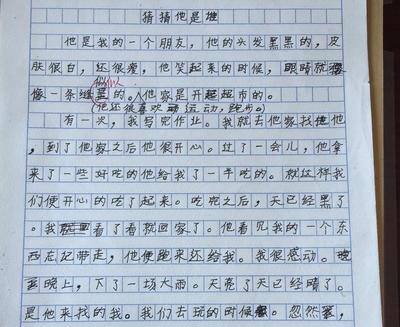 猜猜他是谁
他是我的一个朋友，他的头发黑黑的，皮
肤很白，还很瘦，他笑起来的时候，眼睛就
像一条缝的。他家是开超市的。
他还很喜欢动运动，跑步。
有一天，我写完作业。我就去他家找他
，到了他家之后他很开心。过了一会儿，他拿
来了一些好吃的他给我了一半吃的。就这样我
们便开心的吃了起来。吃完之后，天已经黑了
。我看了看就回家了。他看见我的一个东
西忘记带走，他便跑来还给我。我很感动。
晚上，下了一场大雨。天亮了天已经晴了。
是他来找的我。我们去玩的时候。忽然，